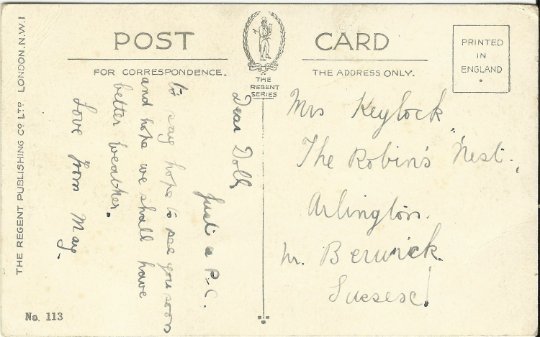 POST CARD
FOR CORRESPONDENCE.
THE ADDRESS ONLY.
THE
REGENT
SERIES
PRINTED
IN
ENGLAND
THE REGENT PUBLISHING CO LTD LONDON. N.W.1
No. 113
Dear Doll
Just a P.C.
to say hope to see you soon
and hope we shall have
better weather.
Love from May.
Mrs Keylock
The Robin's "Nest.
Arlington.
Nr. Berwick.
Sussex!